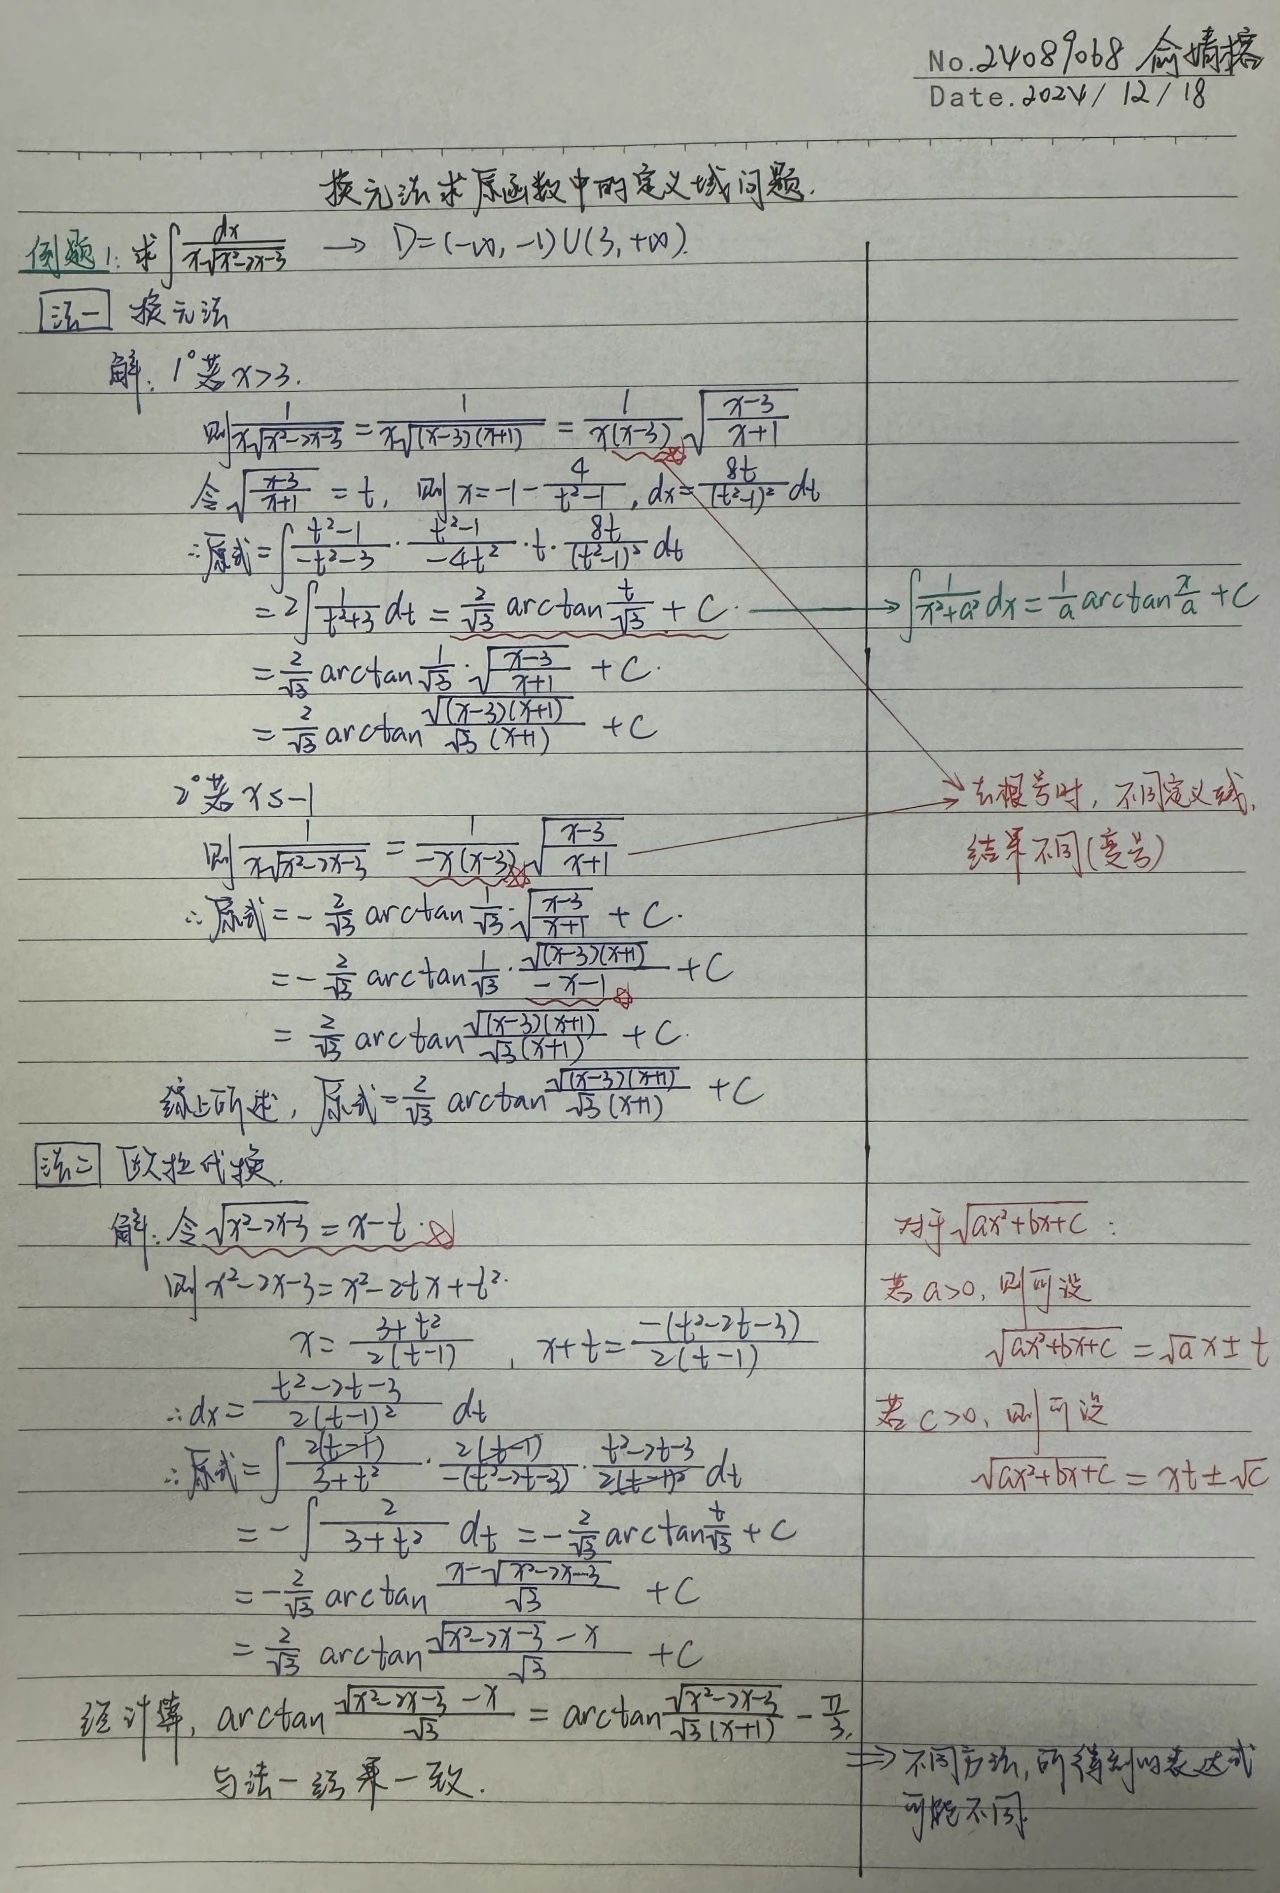 No.24089068 俞婧榕
Date.2024/12/18
换元法求原函数中的定义域问题.
例题1: 求∫dx/(x√(x²-2x-3)) → D=(-∞,-1)∪(3,+∞).
法一 换元法
解: 1°若x>3.
则1/(x√(x²-2x-3)) = 1/(x√((x-3)(x+1))) = 1/(x(x-3)) √((x-3)/(x+1))
令√((x-3)/(x+1)) = t, 则x=-1-4/(t²-1), dx=8t/(t²-1)² dt
∴原式=∫(t²-1)/(-t²-3)·(t²-1)/(-4t²)·t·8t/(t²-1)² dt
=2∫1/(t²+3) dt = 2/√3 arctan t/√3 + C. → ∫1/(x²+a²) dx = 1/a arctan x/a + C
=2/√3 arctan 1/√3·√((x-3)/(x+1)) + C.
=2/√3 arctan √((x-3)(x+1))/(√3(x+1)) + C
2°若x≤-1
去根号时, 不同定义域,
结果不同(变号)
则1/(x√(x²-2x-3)) = 1/(-x(x-3)) √((x-3)/(x+1))
∴原式=-2/√3 arctan 1/√3·√((x-3)/(x+1)) + C.
=-2/√3 arctan 1/√3·√((x-3)(x+1))/(-x-1) + C
=2/√3 arctan √((x-3)(x+1))/(√3(x+1)) + C.
综上所述, 原式=2/√3 arctan √((x-3)(x+1))/(√3(x+1)) + C
法二 欧拉代换.
解: 令√(x²-2x-3)=x-t.
则x²-2x-3=x²-2tx+t².
x=(3+t²)/(2(t-1)), x+t=-(t²-2t-3)/(2(t-1))
∴dx=(t²-2t-3)/(2(t-1)²) dt
∴原式=∫2(t-1)/(3+t²)·2(t-1)/(-(t²-2t-3))·(t²-2t-3)/(2(t-1)²) dt
=-∫2/(3+t²) dt=-2/√3 arctan t/√3+C
=-2/√3 arctan (x-√(x²-2x-3))/√3 + C
=2/√3 arctan (√(x²-2x-3)-x)/√3 + C
对于√(ax²+bx+c):
若a>0, 则可设
√(ax²+bx+c)=√a x±t
若c>0, 则可设
√(ax²+bx+c)=xt±√c
经计算, arctan (√(x²-2x-3)-x)/√3 = arctan √(x²-2x-3)/(√3(x+1)) - π/3,
与法一结果一致.
⇒不同方法, 所得到的表达式
可能不同.